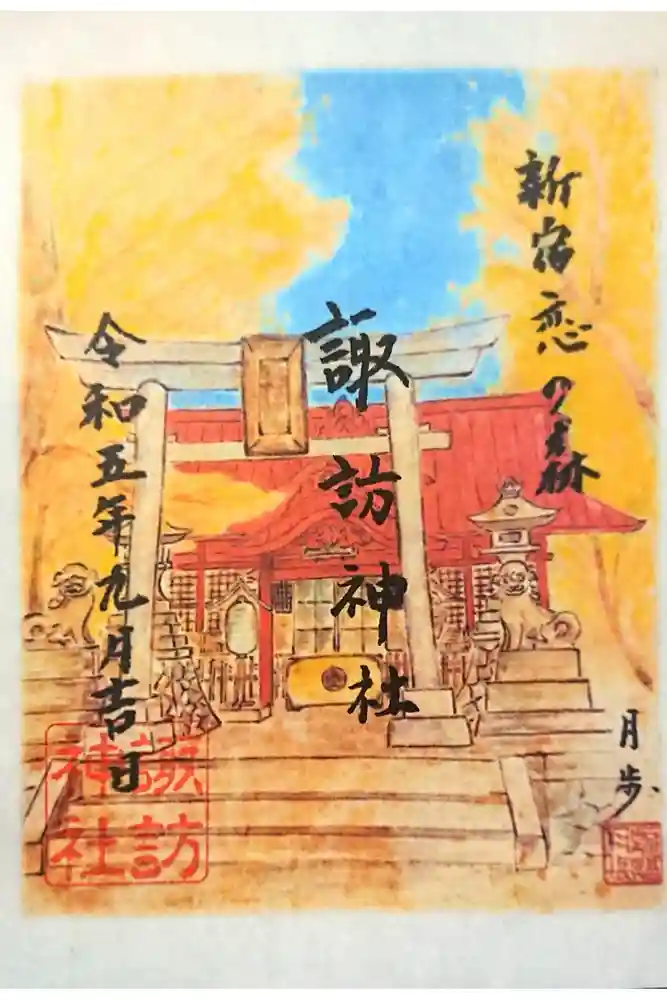 新宿恋の森
諏訪神社
令和五年九月吉日
月歩
諏訪
神社